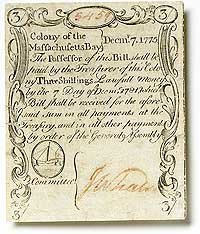 7 5451 7
Colony of the Decmr. 7, 1775
Massachusetts Bay
The Possessor of this Bill shall be
paid by the Treasurer of this Colony
Three Shillings Lawfull Money
by the 7 Day of Decmr. 1781 which
Bill shall be received for the afore
said sum in all payments at the
Treasury, and in all other payments
by order of the General Assembly
Committee